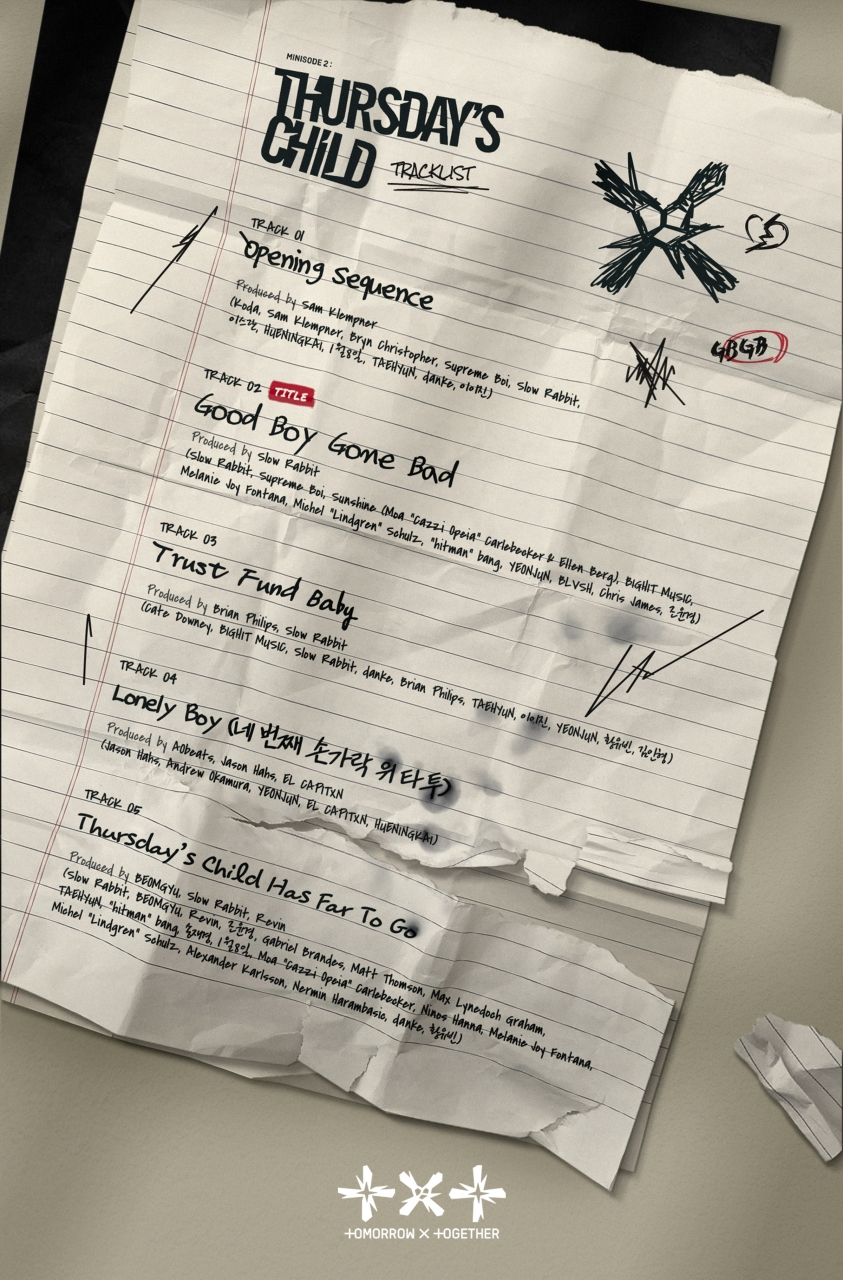 MINISODE 2:
THURSDAY'S
CHILD
TRACKLIST
TRACK 01
Opening Sequence
Produced by Sam Klempner
(Koda, Sam Klempner, Bryn Christopher, Supreme Boi, Slow Rabbit,
이스란, HUENINGKAI, 1월8일, TAEHYUN, danke, 이이진)
GBGB
TRACK 02 TITLE
Good Boy Gone Bad
Produced by Slow Rabbit
(Slow Rabbit, Supreme Boi, Sunshine (Moa "Cazzi Opeia" Carlebecker & Ellen Berg), BIGHIT MUSIC,
Melanie Joy Fontana, Michel "Lindgren" Schulz, "hitman" bang, YEONJUN, BLVSH, Chris James, 조윤경)
TRACK 03
Trust Fund Baby
Produced by Brian Philips, Slow Rabbit
(Cate Downey, BIGHIT MUSIC, Slow Rabbit, danke, Brian Philips, TAEHYUN, 이이진, YEONJUN, 황유빈, 김인형)
TRACK 04
Lonely Boy (네 번째 손가락 위 타투)
Produced by A0beats, Jason Hahs, EL CAPITXN
(Jason Hahs, Andrew Okamura, YEONJUN, EL CAPITXN, HUENINGKAI)
TRACK 05
Thursday's Child Has Far To Go
Produced by BEOMGYU, Slow Rabbit, Revin
(Slow Rabbit, BEOMGYU, Revin, 조윤경, Gabriel Brandes, Matt Thomson, Max Lynedoch Graham,
TAEHYUN, "hitman" bang, 1월8일, Moa "Cazzi Opeia" Carlebecker, Ninos Hanna, Melanie Joy Fontana,
Michel "Lindgren" Schulz, Alexander Karlsson, Nermin Harambasic, danke, 황유빈)
TOMORROW X TOGETHER